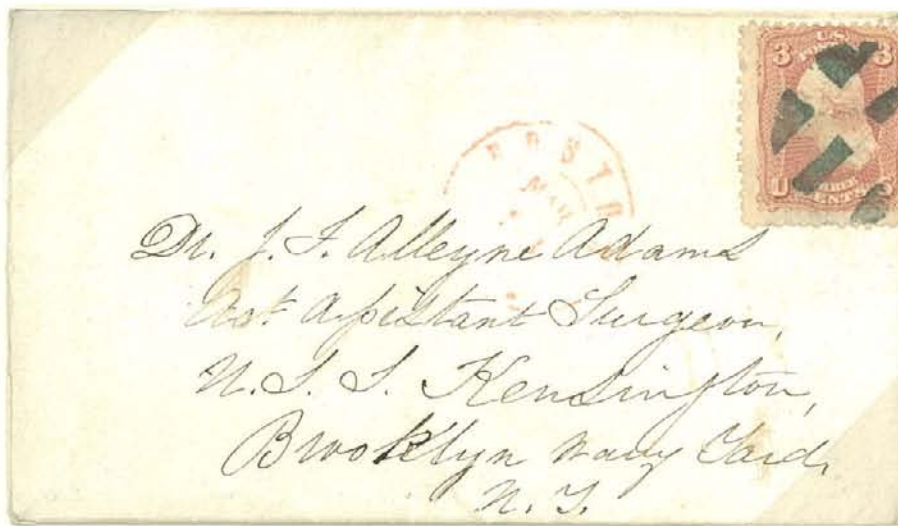 U.S.
3 3
U S
CENTS
BOSTO
MAR
Dr. J. F. Alleyne Adams
Act. Assistant Surgeon,
U.S.S. Kensington,
Brooklyn Navy Yard,
N. Y.